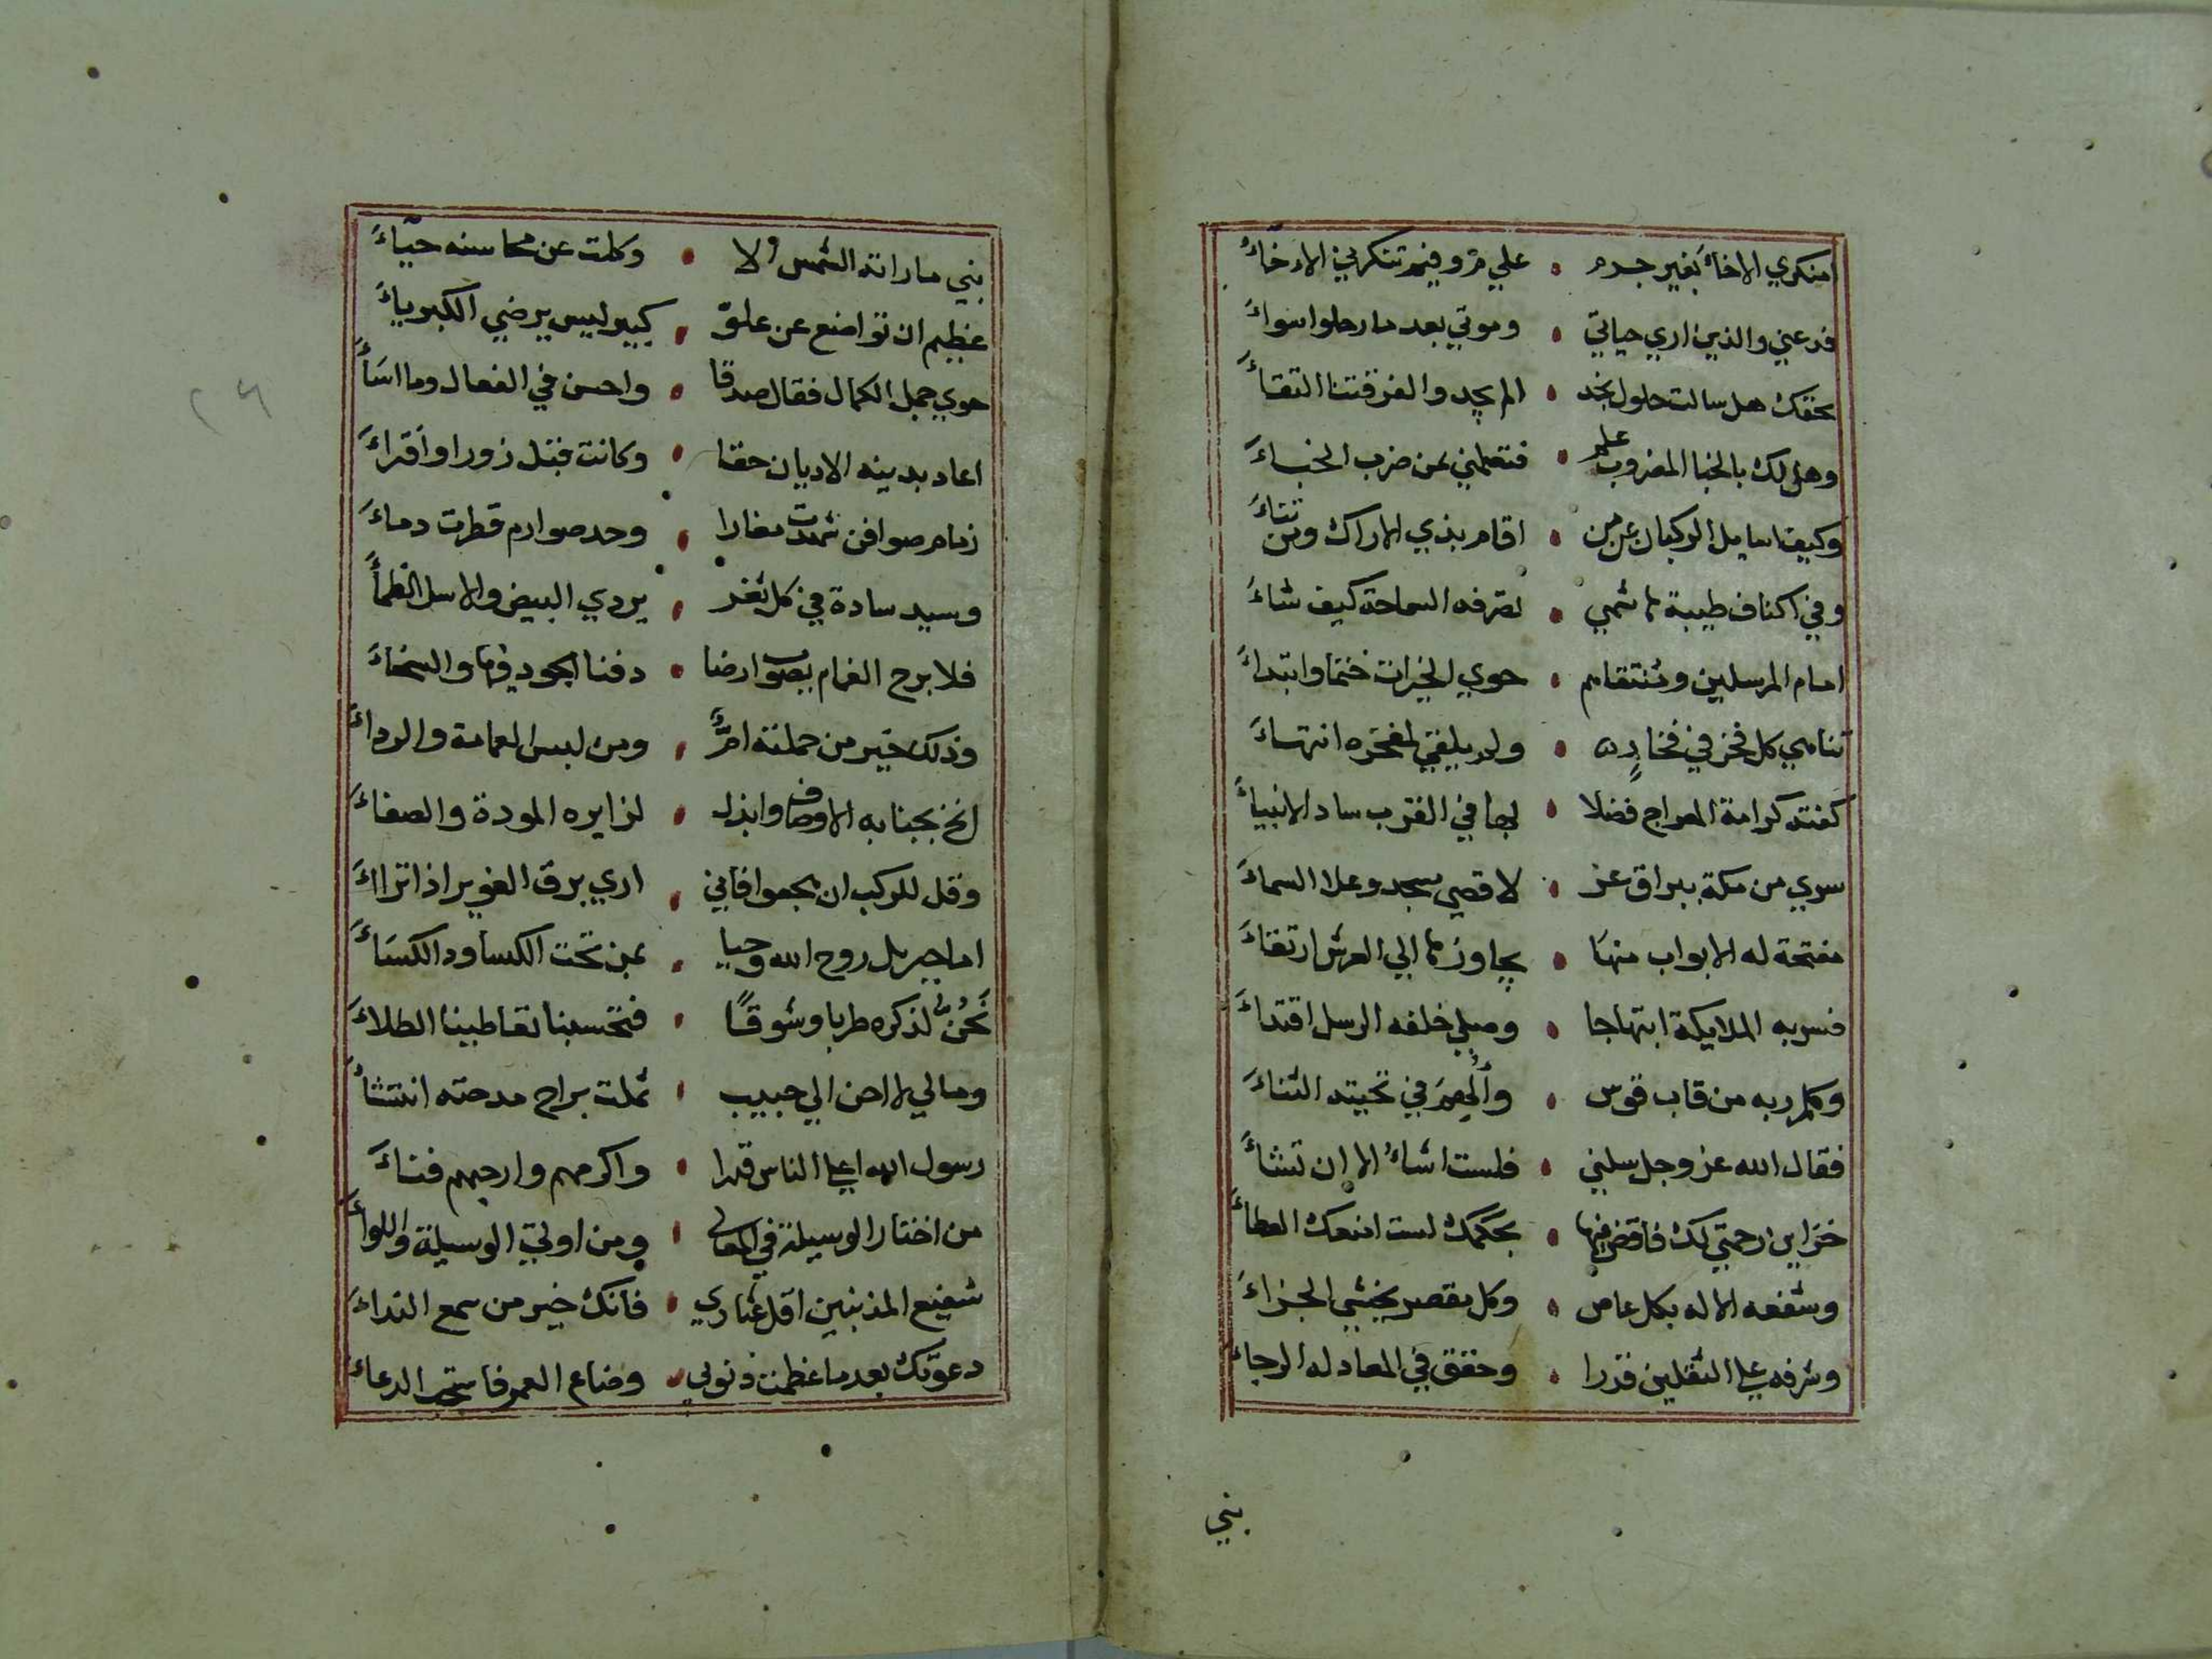 امنكري الاخاء بغير جرم • علي م وفيم تنكرني الاخاء
فدعني والذين اري حياتي • وموتي بعد ما رحلوا سواء
بحقك هل سالت حلول نجد • المجد والفرقتنا التقاء
وهل لك بالخبا المضروب علم • فتعلمني بمن ضرب الخباء
وكيف الركبان عن من • اقام بذي الاراك ومن تناء
وفي اكناف طيبة هاشمي • تصرفه السماحة كيف شاء
امام المرسلين ومنتقاهم • حوي الخيرات ختما وابتداء
تناهي كل فخر في فخاره • ولم يلق لمفخره انتهاء
كفته كرامة المعراج فضلا • بها في القرب ساد الانبياء
سري من مكة ببراق عز • لاقصي مسجد وعلا السماء
مفتحة له الابواب منها • يجاوزها الي العرش ارتقاء
فسر به الملايكة ابتهاجا • وصلي خلفه الرسل اقتداء
وكلم ربه من قاب قوس • والهم في تحيته الثناء
فقال الله عز وجل سلني • فلست اشاء الا ان تشاء
خزاين رحمتي لك فاقض فيها • بحكمك لست امنعك العطاء
وشفعه الاله بكل عاص • وكل مقصر يخشي الجزاء
وشرفه علي الثقلين قدرا • وحقق في المعاد له الرجاء
بني
بني ما راته الشمس الا • وكلت عن محاسنه حياء
عظيم ان تواضع عن علو • كبير ليس يرضي الكبرياء
حوي جمل الكمال فقال صدقا • واحسن في الفعال وما اساء
اعاد بدينه الاديان حقا • وكانت قبل زورا وافراء
زمام صوافن شدت مغارا • وحد صوارم قطرت دماء
وسيد سادة في كل ثغر • يروي البيض والاسل الظماء
فلا برح الغمام يصوب ارضا • دفنا الجود فيها والسخاء
وذلك خير من حملته ام • ومن لبس العمامة والرداء
انخ بجنابه الاوصاف وابذل • لزايره المودة والصفاء
وقل للركب ان يجموا فاني • اري برق الغوير اذا تراأ
اما جبريل روح الله وحيا • بمن تحت الكساء ود الكساء
نحن لذكره طربا وشوقا • فتحسبنا تعاطينا الطلاء
ومالي لا احن الي حبيب • ثملت براح مدحته انتشاء
رسول الله اعلا الناس قدرا • واكرمهم وارحبهم فناء
من اختار الوسيلة في المعالي • ومن اوتي الوسيلة واللواء
شفيع المذنبين اقل عثاري • فانك خير من سمع النداء
دعوتك بعد ما عظمت ذنوبي • وضاع العمر فاستجب الدعاء
٢٦